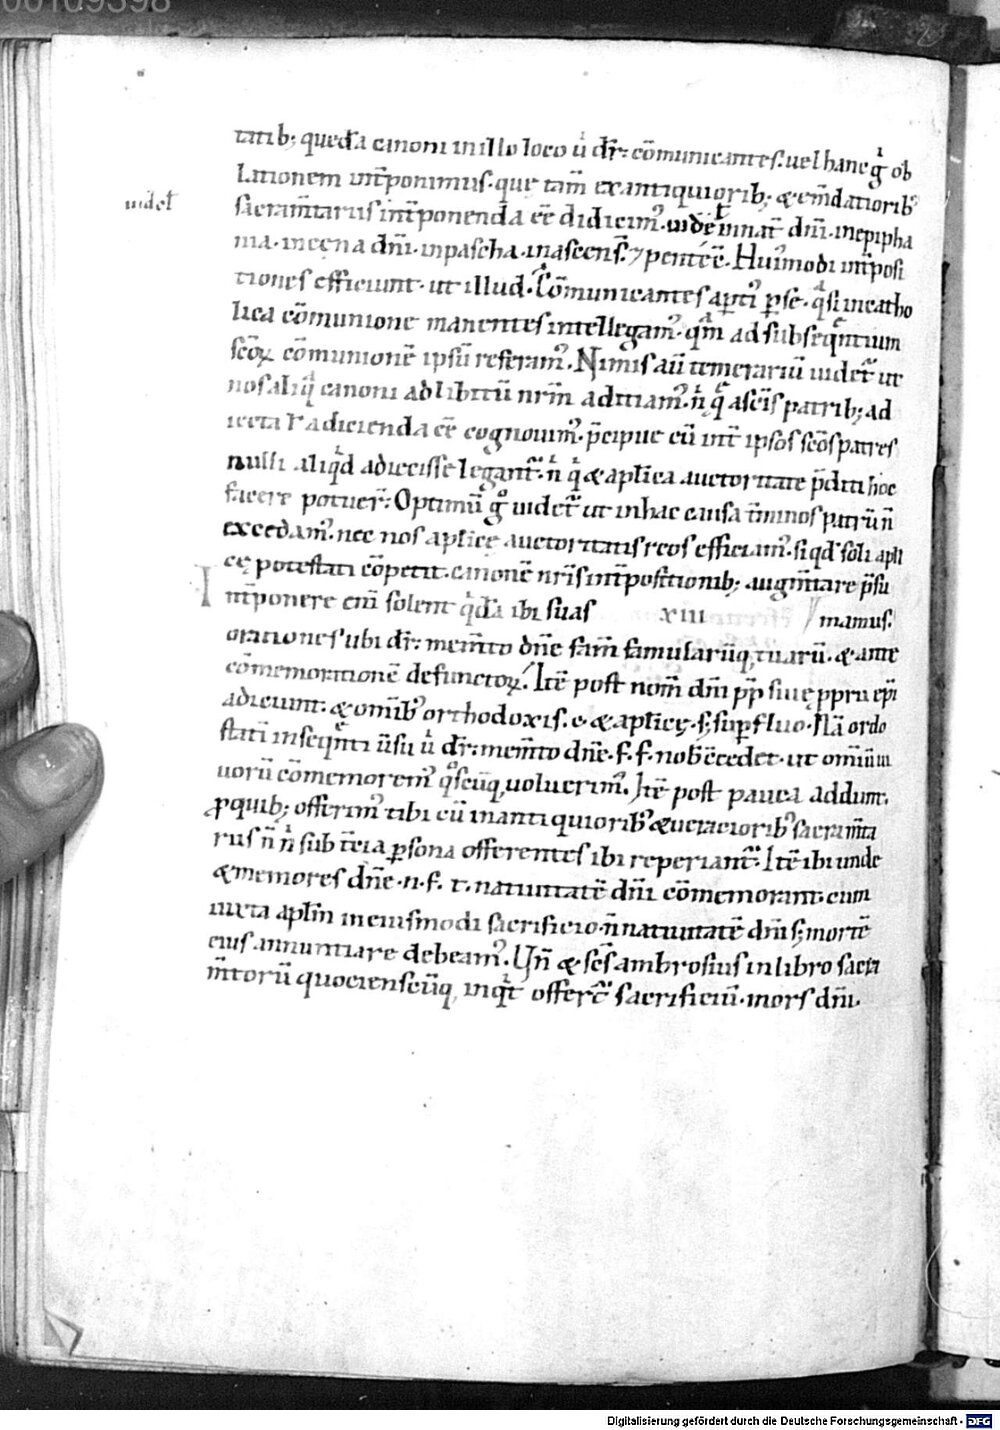 00109398
tatib; queda canoni in illo loco u͛ dr̄: cōmunicantes. uel hanc gͥ ob
lationem int̄ponimus. quę tam̄ ex antiquiorib; & em̄datiorib᷒
uidet᷒
sacram̄tariis int̄ponenda eē didicim᷒. uidet᷒ in nat̄ dn̄i. in epipha
nia. in cęna dn̄i. in pascha. in ascens̄. ⁊ pentec̄. Hui᷒modi int̄posi
tiones efficiunt. ut illud. Cōmunicantes apti᷒ p̄ se. qͣsi in catho
lica cōmunione manentes intellegam᷒. qm̄ ad subseqͤntium
sc̄oꝝ cōmunionē ipsū referam᷒. Nimis aū temerariū uidet᷒ ut
nos aliqͥd canoni ad libitū nr̄m addiam᷒. n̄ qͥ a sc̄is patrib; ad
iecta ł adicienda eē cognouim᷒. p̄cipue cū int̄ ipsos sc̄os patres
nulli aliqͥd adiecisse legant᷒. n̄ qͥ & aplica auctoritate p̄diti hoc
facere potuer̄. Optimū gͦ uidet᷒ ut in hac causa t̄minos patrū n̄
excedam᷒. nec nos aplicę auctoritatis reos efficiam᷒. si qd soli apli
cę potestati cōpetit. canonē nr̄is int̄positionib; augm̄tare p̄su
Int̄ponere eni solent qͥda ibi suas XIII mamus.
orationes ubi dr̄: mem̄to dn̄e fam̄ famularūq, tuarū. & ante
cōmemorationē defunctoꝝ. Itē post nom̄ dn̄i pp̄ siuę pprii ep̄i
adiciunt. & omīb᷒ orthodoxis. c. & aplicę. f; sup̄fluo. Nā ordo
statī in seqͤnti ūsu u͛ dr̄: mem̄to dn̄e. f. f. nob ēcedet. ut omniū
uorū cōmemorem᷒ qͦscūq, uoluerim᷒. Itē post pauca addunt.
ꝓ quib; offerim᷒ tibi cū in antiquiorib᷒ & ueraciorib᷒ sacram̄ta
riis n̄ n̄ sub t̄cia p̄sona offerentes ibi reperiant᷒. Itē ibi unde
& memores dn̄e. n. f. t. natiuitatē dn̄i cōmemorant. cum
iuxta apl̄m in eiusmodi sacrificio. n̄ natiuitatē dn̄i f; mortē
eius. annuntiare debeam᷒. Un̄ & sc̄s ambrosius in libro sacra
m̄torū quociens cūq, inqͥt offert᷒ sacrificiū. mors dn̄i.
Digitalisierung gefördert durch die Deutsche Forschungsgemeinschaft - DFG